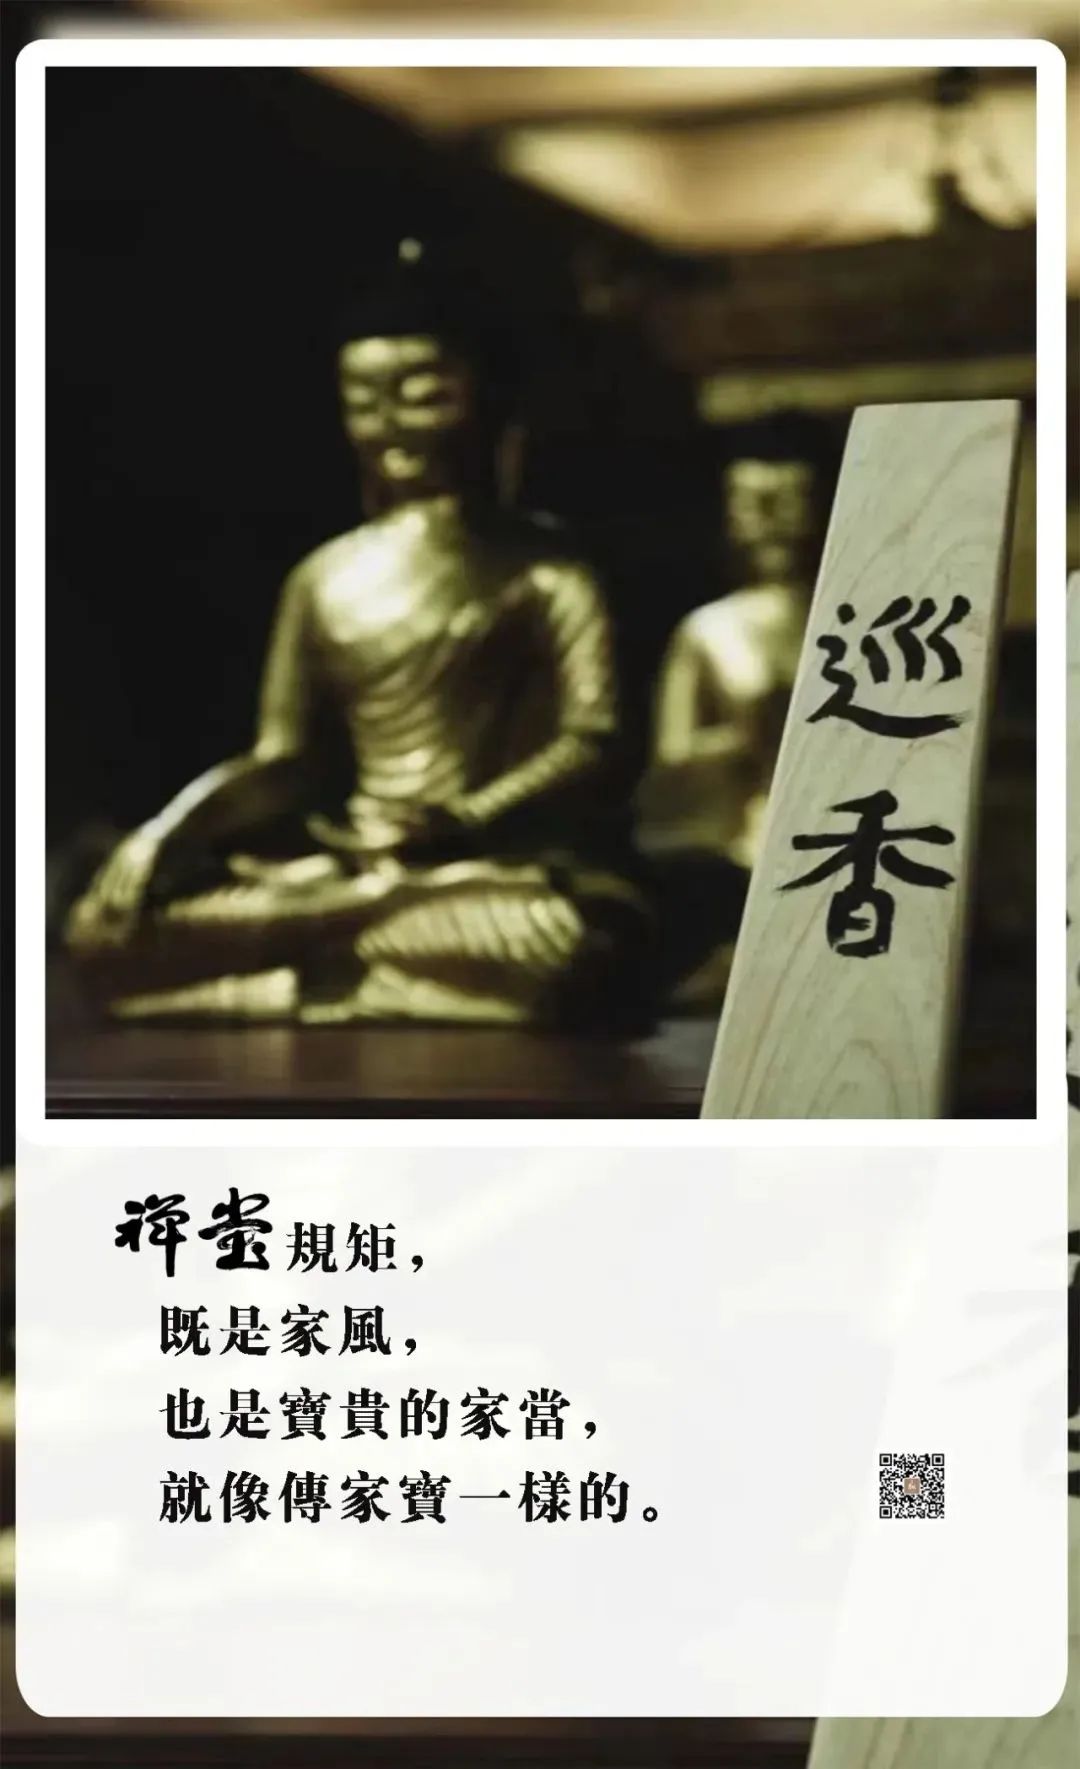 巡香
禪堂規矩，
既是家風，
也是寶貴的家當，
就像傳家寶一樣的。